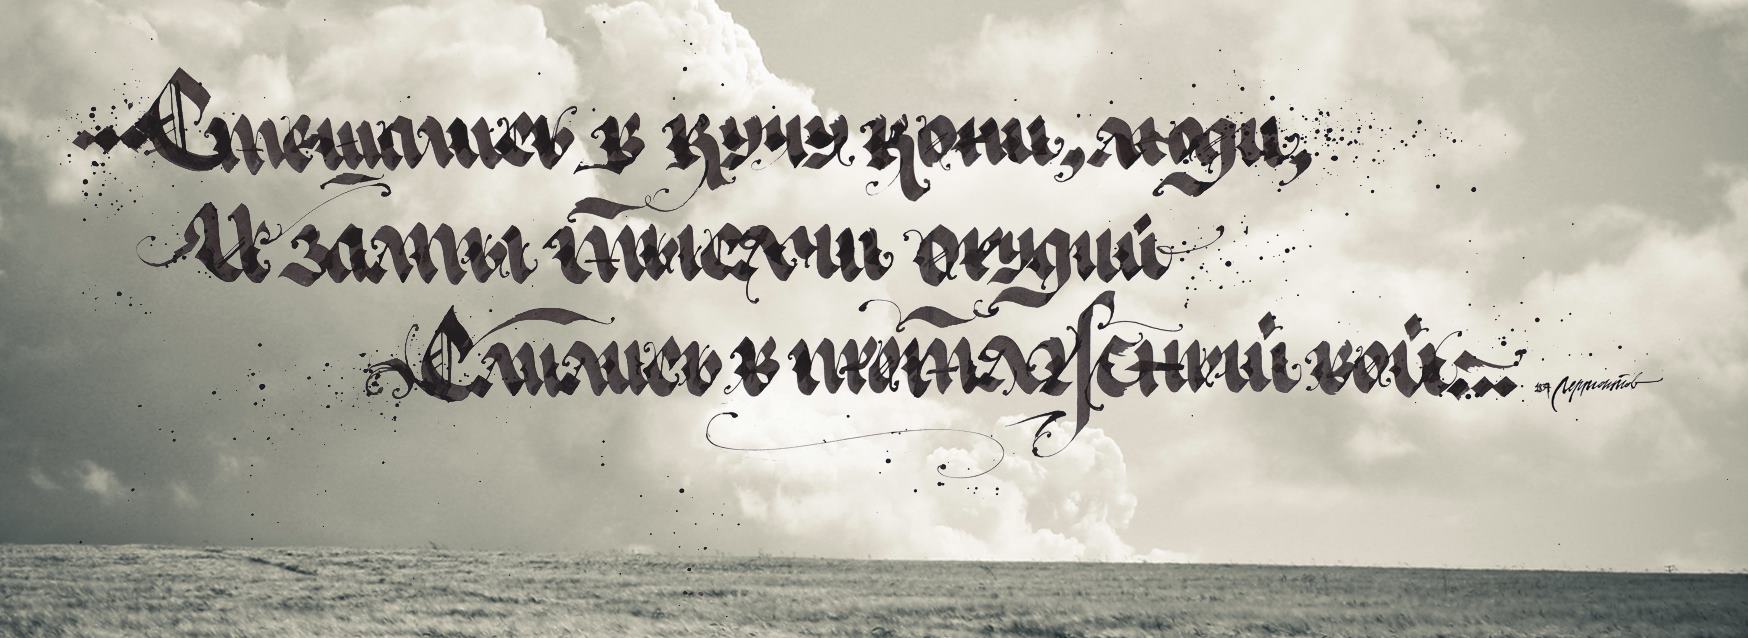 ...Смешались в кучу кони, люди,
И залпы тысячи орудий
Слились в протяжный вой...
Лермонтов